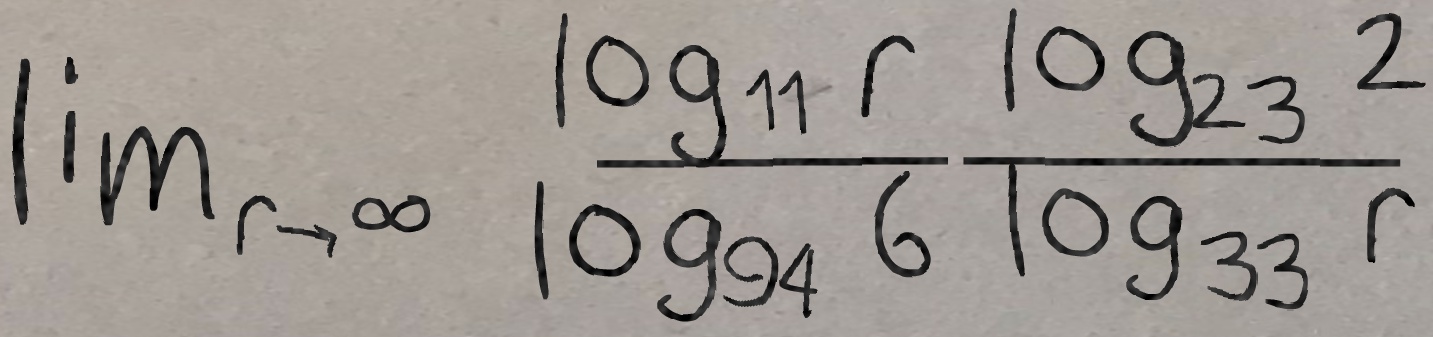 \lim_{r \to \infty} \frac{\log_{11} r}{\log_{94} 6} \frac{\log_{23} 2}{\log_{33} r}